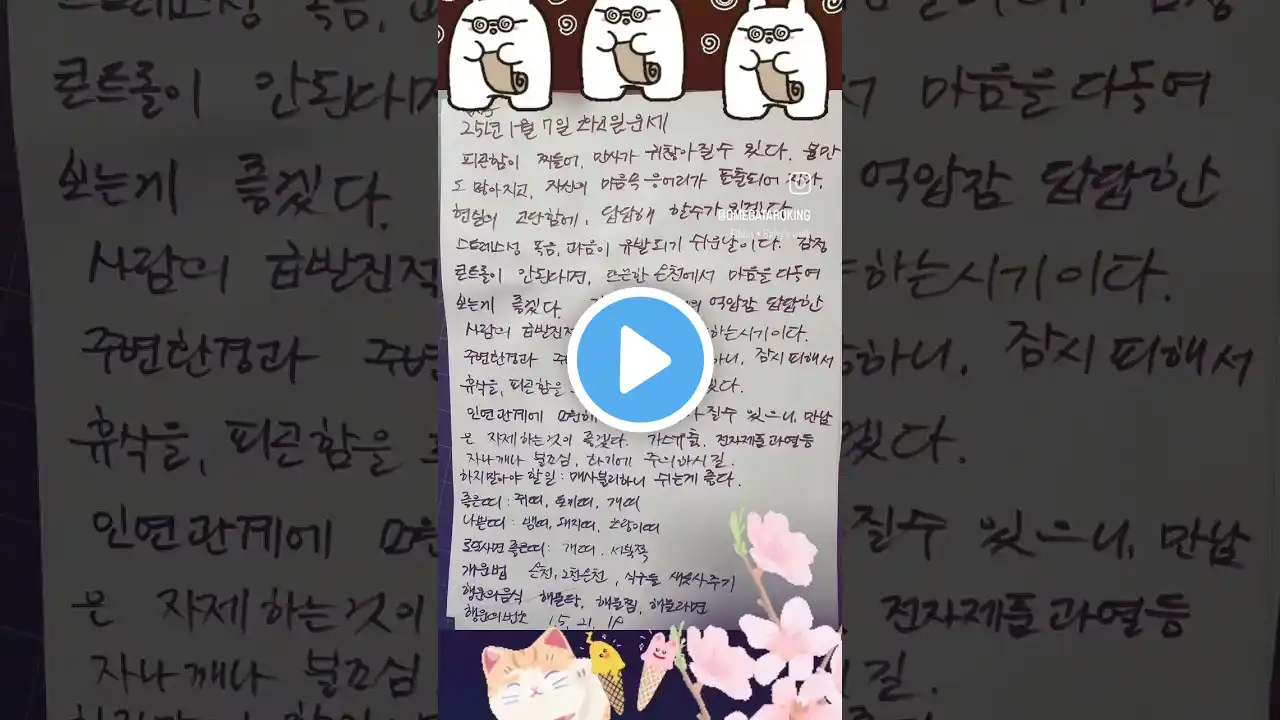 25년 1월 7일 화요일 운세
피곤함이 찌들어, 만사가 귀찮아질수 있다. 불만
도 많아지고, 자신의 마음속 응어리가 표출되어
@OMEGATAROKING
현실의 고단함에, 답답해 할수가 있겠다.
스트레스성 폭음, 과음이 유발되기 쉬운날이다. 감정
컨트롤이 안된다면, 뜨끈한 온천에서 마음을 다독여
보는게 좋겠다. 억압감 답답한
사람의 하는시기이다.
주변환경과 하니, 잠시 피해서
휴식을, 피곤함을
인연관계에 질수 있으니, 만남
은 자제하는것이 좋겠다. 가스유출, 전자제품과열등
자나깨나 불조심, 하기에 주의하시길.
하지말아야 할일 : 매사불리하니 쉬는게 좋다.
좋은띠 : 쥐띠, 토끼띠, 개띠
나쁜띠 : 뱀띠, 돼지띠, 호랑이띠
로또사면 좋은띠 : 개띠. 서북쪽
개운법 온천, 식구들 새옷사주기
행운의음식 해물탕, 해물찜, 해물라면
행운의번호 15, 21, 18